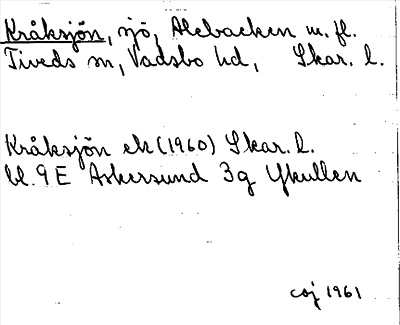 Kråksjön, sjö, Alebacken m. fl.
Tiveds sn, Vadsbo hd, Skar. l.
Kråksjön ek (1960) Skar. l.
bl. 9E Askersund 3g Ykullen
coj 1961